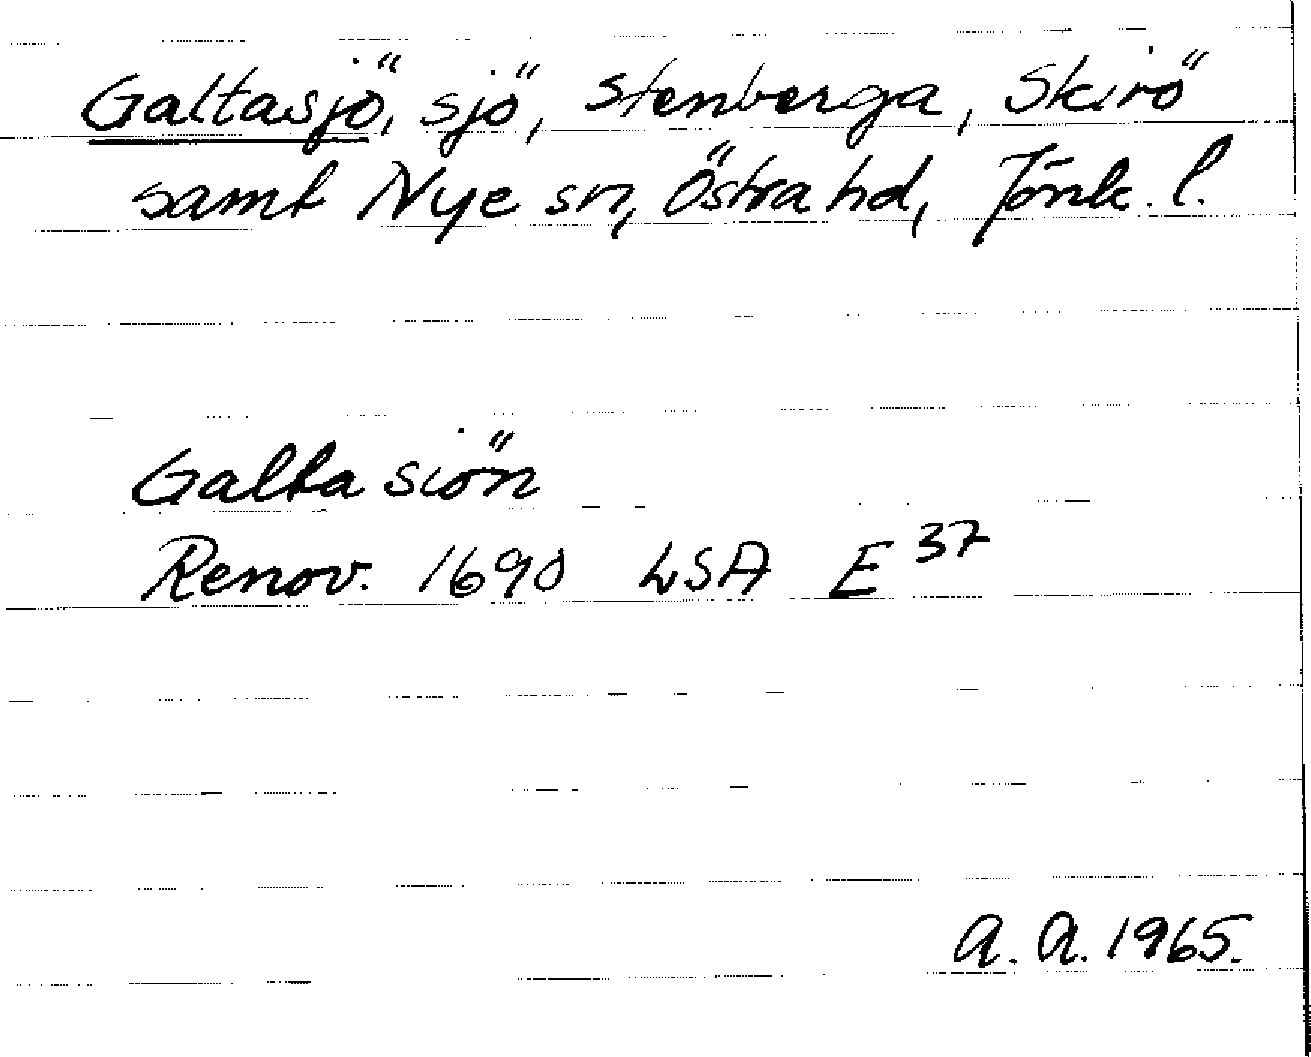 Galtasjö, sjö, Stenberga, Skirö
samt Nye sn, Östra hd, Jönk. l.
Galta siön
Renov. 1690 LSA E 37
A. A. 1965.